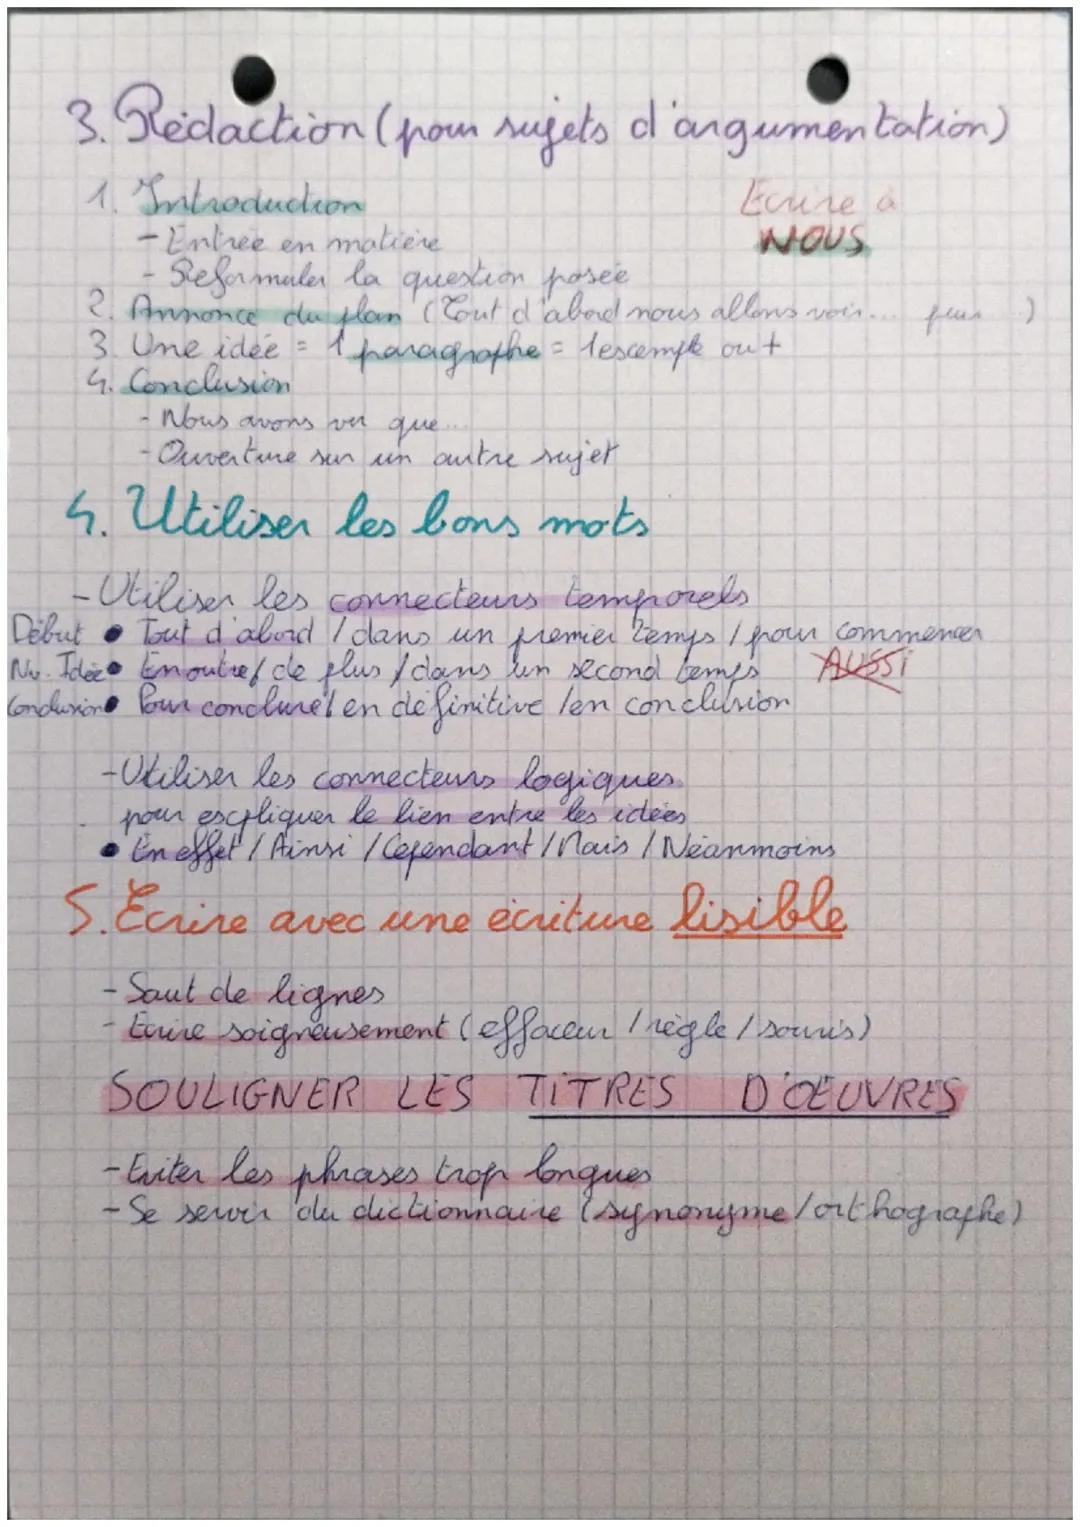 3. Rédaction (pour sujets d'argumentation)
1. Introduction
Ecrire à
NOUS
- Entrée en matière
- Reformuler la question posée
2. Annonce du plan (Tout d'abord nous allons voir... puis )
3. Une idée = 1 paragraphe = 1 exemple ou +
4. Conclusion
- Nous avons vu que...
- Ouverture sur un autre sujet
4. Utiliser les bons mots
- Utiliser les connecteurs temporels
Début • Tout d'abord / dans un premier temps / pour commencer
Nv. Idée • En outre / de plus / dans un second temps AUSSI
Conclusion • Pour conclure / en définitive / en conclusion
- Utiliser les connecteurs logiques
pour expliquer le lien entre les idées
• En effet / Ainsi / Cependant / Mais / Néanmoins
5. Ecrire avec une écriture lisible
- Saut de lignes
- Ecrire soigneusement (effaceur / règle / souris)
SOULIGNER LES TITRES D'OEUVRES
- Eviter les phrases trop longues
- Se servir du dictionnaire (synonyme / orthographe)